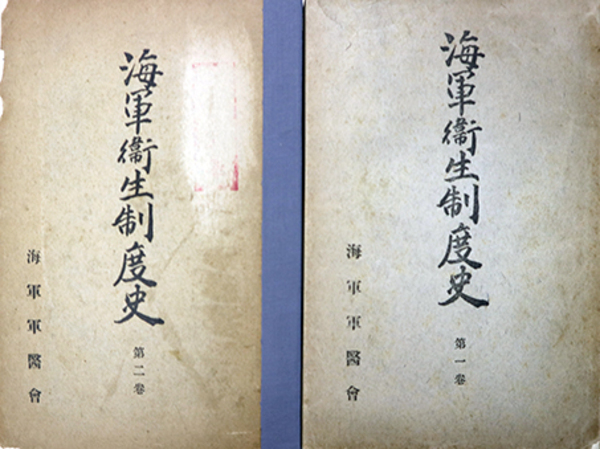 海軍衞生制度史
第一卷
海軍軍醫會
海軍衞生制度史
第二卷
海軍軍醫會